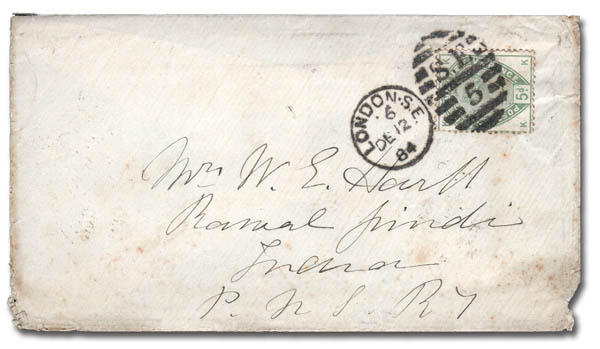 S.E
5
K
5d
K
LONDON·S.E.
6
DE 12
84
Mrs W. E. Hart
Rawal Pindi
India
P. N. S. Ry